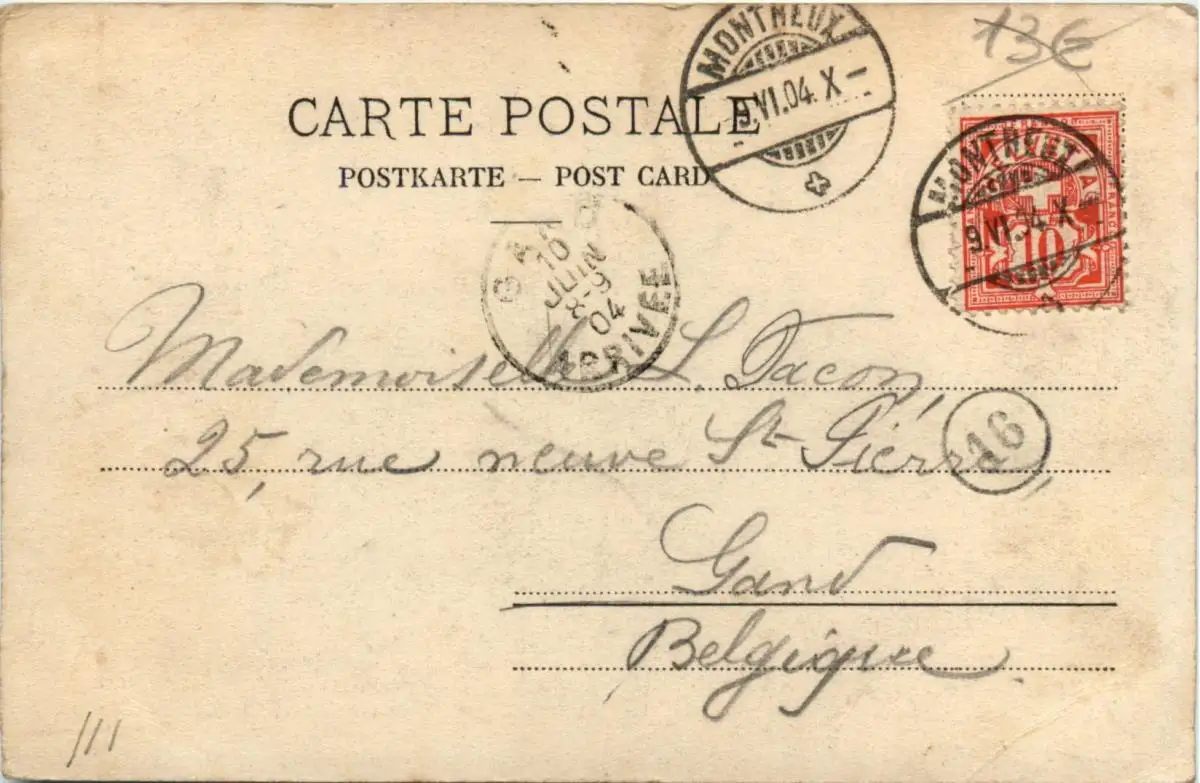 13€
CARTE POSTALE
POSTKARTE — POST CARD
MONTREUX
9.VI.04. X
MONTREUX
9.VI.04 X
FRANCO
10
GAND
10
JUIN
8-9
04
ARRIVÉE
Mademoiselle L. Tacon,
25, rue neuve St-Piérre
16
Gand
Belgique
111